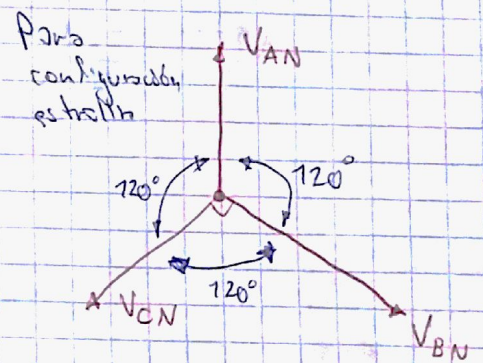 Para
configuración
estrella
V_AN
120°
120°
120°
V_CN
V_BN